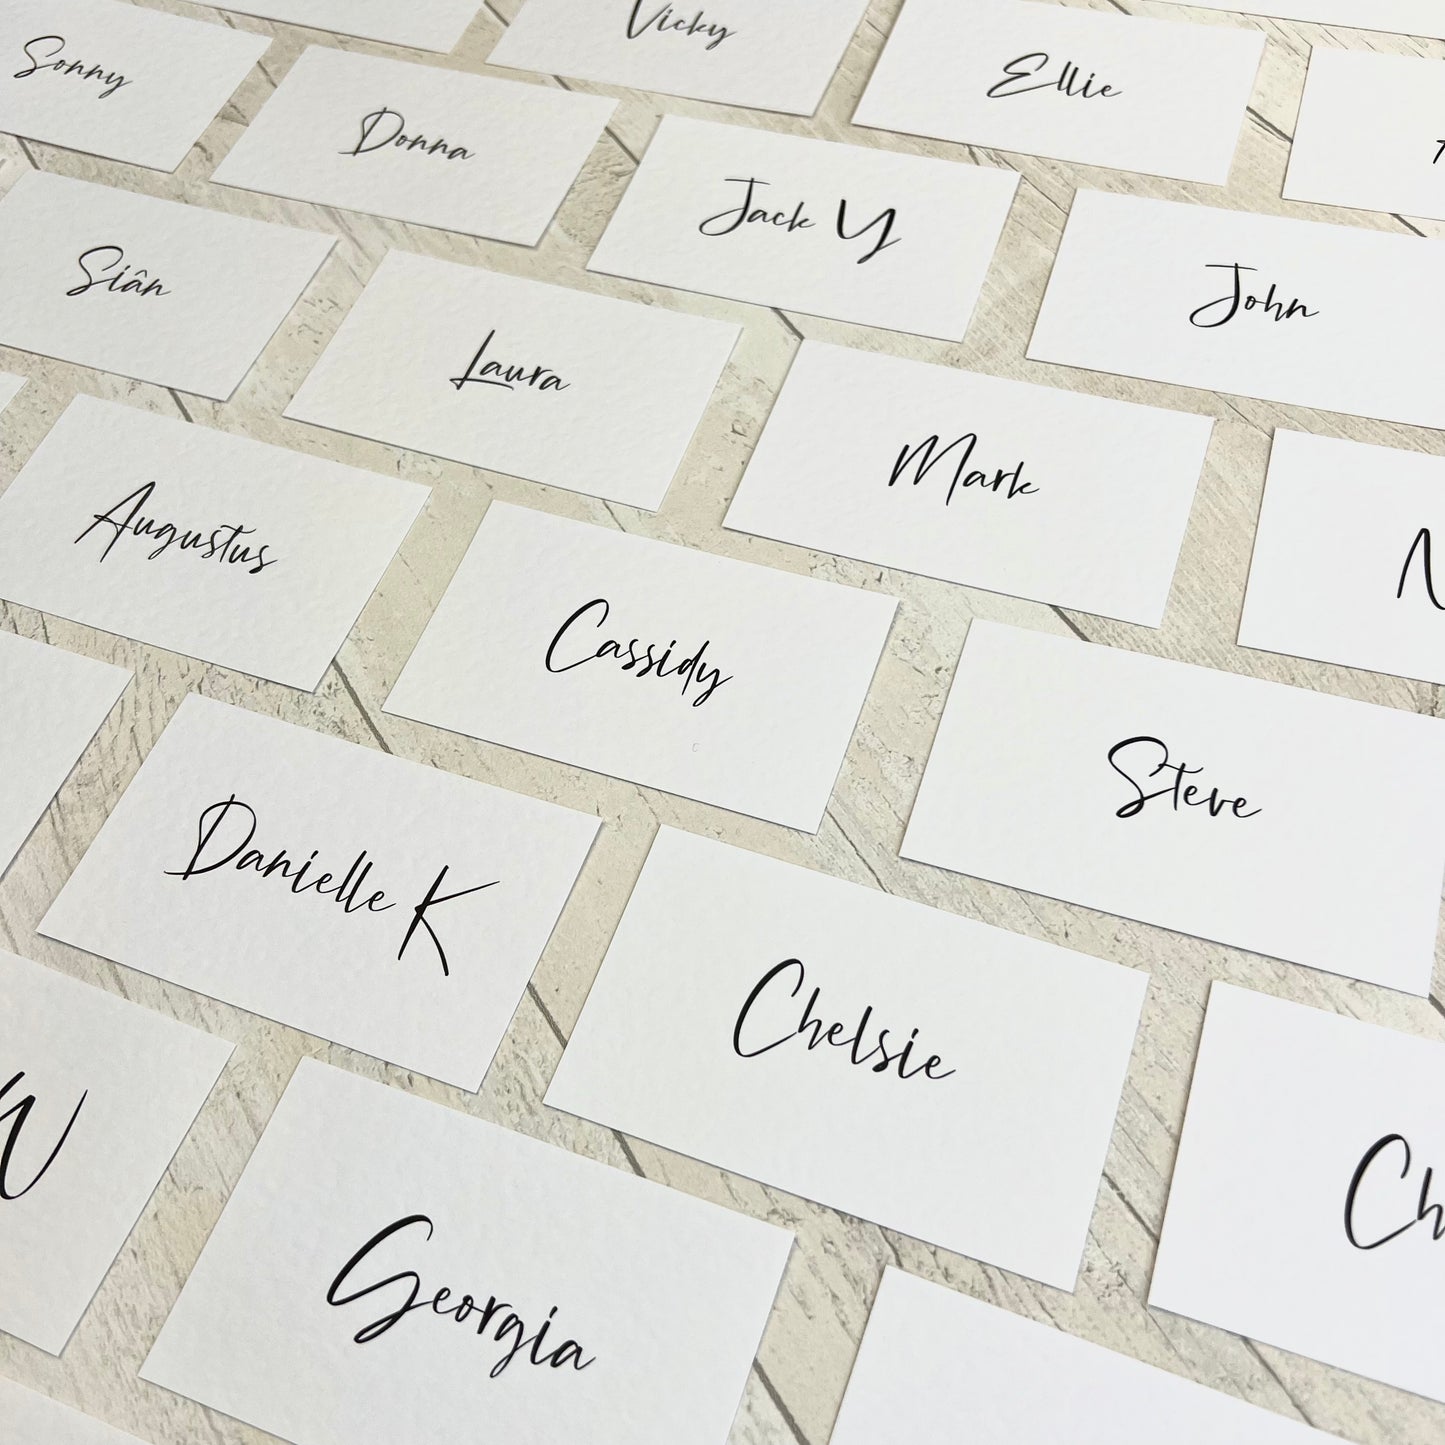 Vicky
Sonny
Ellie
Donna
Jack Y
Siân
John
Laura
Mark
Augustus
Cassidy
Steve
Danielle K
Chelsie
W
Georgia